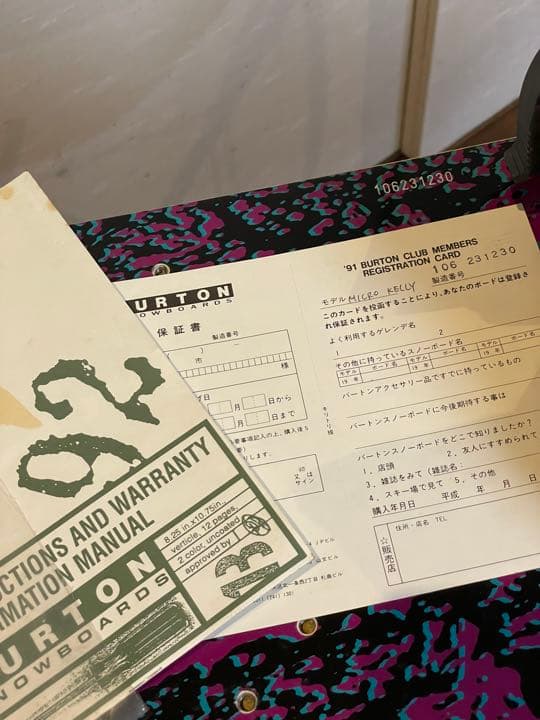 106231230
'91 BURTON CLUB MEMBERS
REGISTRATION CARD
106 231230
製造番号
モデル MICRO KELLY
このカードを投函することにより、あなたのボードは登録さ
れ保証されます。
よく利用するゲレンデ名
1
2
その他に持っているスノーボード名
モデル ボード名 モデル ボード名 モデル ボード名
19 年 19 年 19 年
バートンアクセサリー品ですでに持っているもの
バートンスノーボードに今後期待する事は
バートンスノーボードをどこで知りましたか?
1. 店頭 2. 友人にすすめられて
3. 雑誌をみて(雑誌名
4. スキー場で見て 5. その他
購入年月日 平成 年 月 日
住所・店名 TEL
☆販売店
キリトリ線
BURTON
SNOWBOARDS
保証書
製造番号
市
様
日から
月
日まで
月
要事項記入の上、購入後5
します。
印
又は
サイン
92
CTIONS AND WARRANTY
RMATION MANUAL
8.25 in x10.75in.,
verticle, 12 pages,
2 color, uncoated
approved by
13
URTON
NOWBOARDS